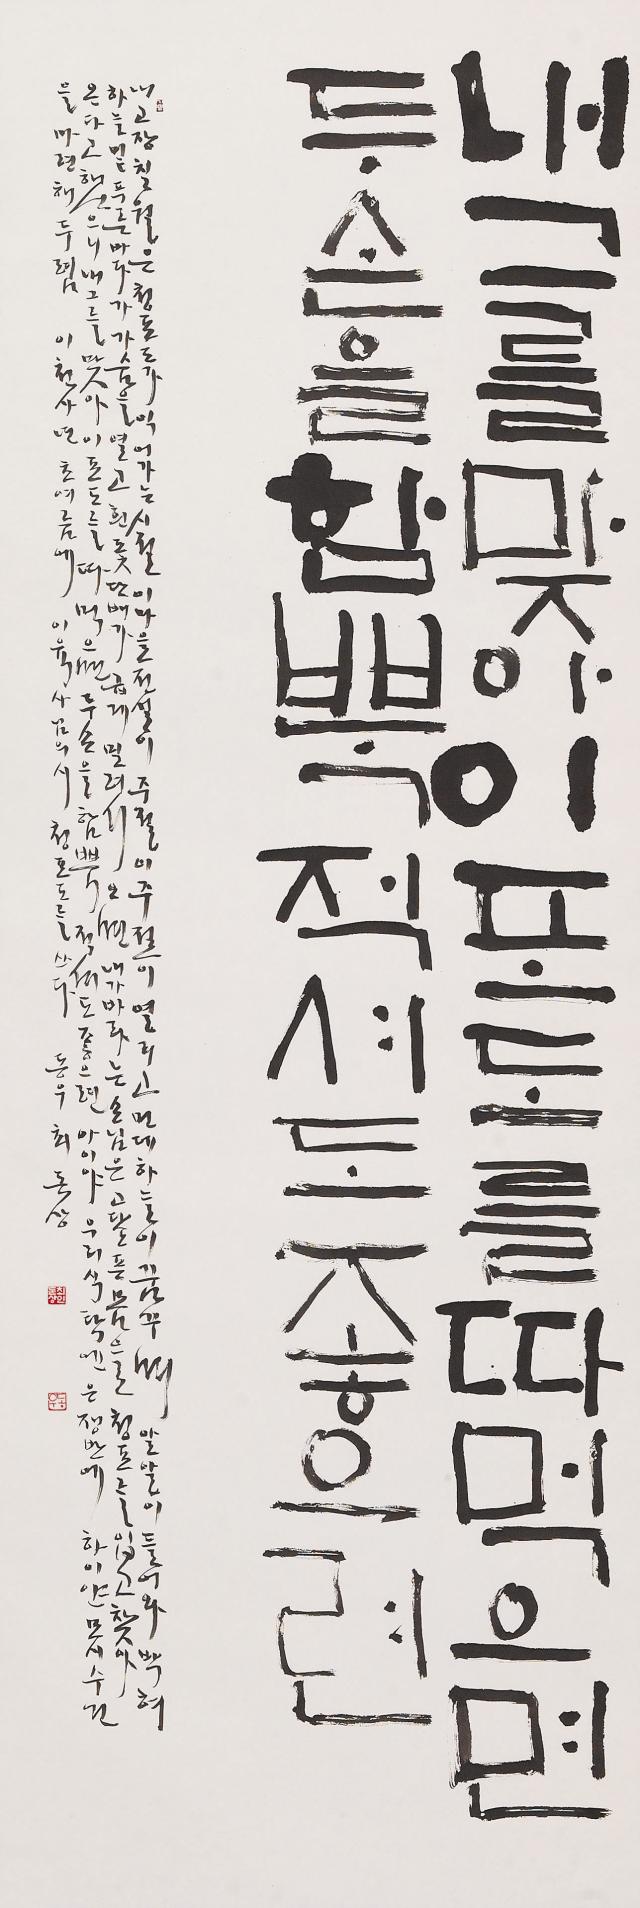 내 그를 맞아 이 포도를 따 먹으면
두 손을 함뿍 적셔도 좋으련
내 고장 칠월은 청포도가 익어가는 시절 이 마을 전설이 주절이주절이 열리고 먼데 하늘이 꿈꾸며 알알이 들어와 박혀
하늘 밑 푸른 바다가 가슴을 열고 흰 돛단배가 곱게 밀려서 오면 내가 바라는 손님은 고달픈 몸으로 청포를 입고 찾아
온다고 했으니 내 그를 맞아 이 포도를 따 먹으면 두 손을 함뿍 적셔도 좋으련 아이야 우리 식탁엔 은쟁반에 하이얀 모시수건
을 마련해 두렴 이천사년 초여름에 이육사님의 시 청포도를 쓰다 동우 최돈상